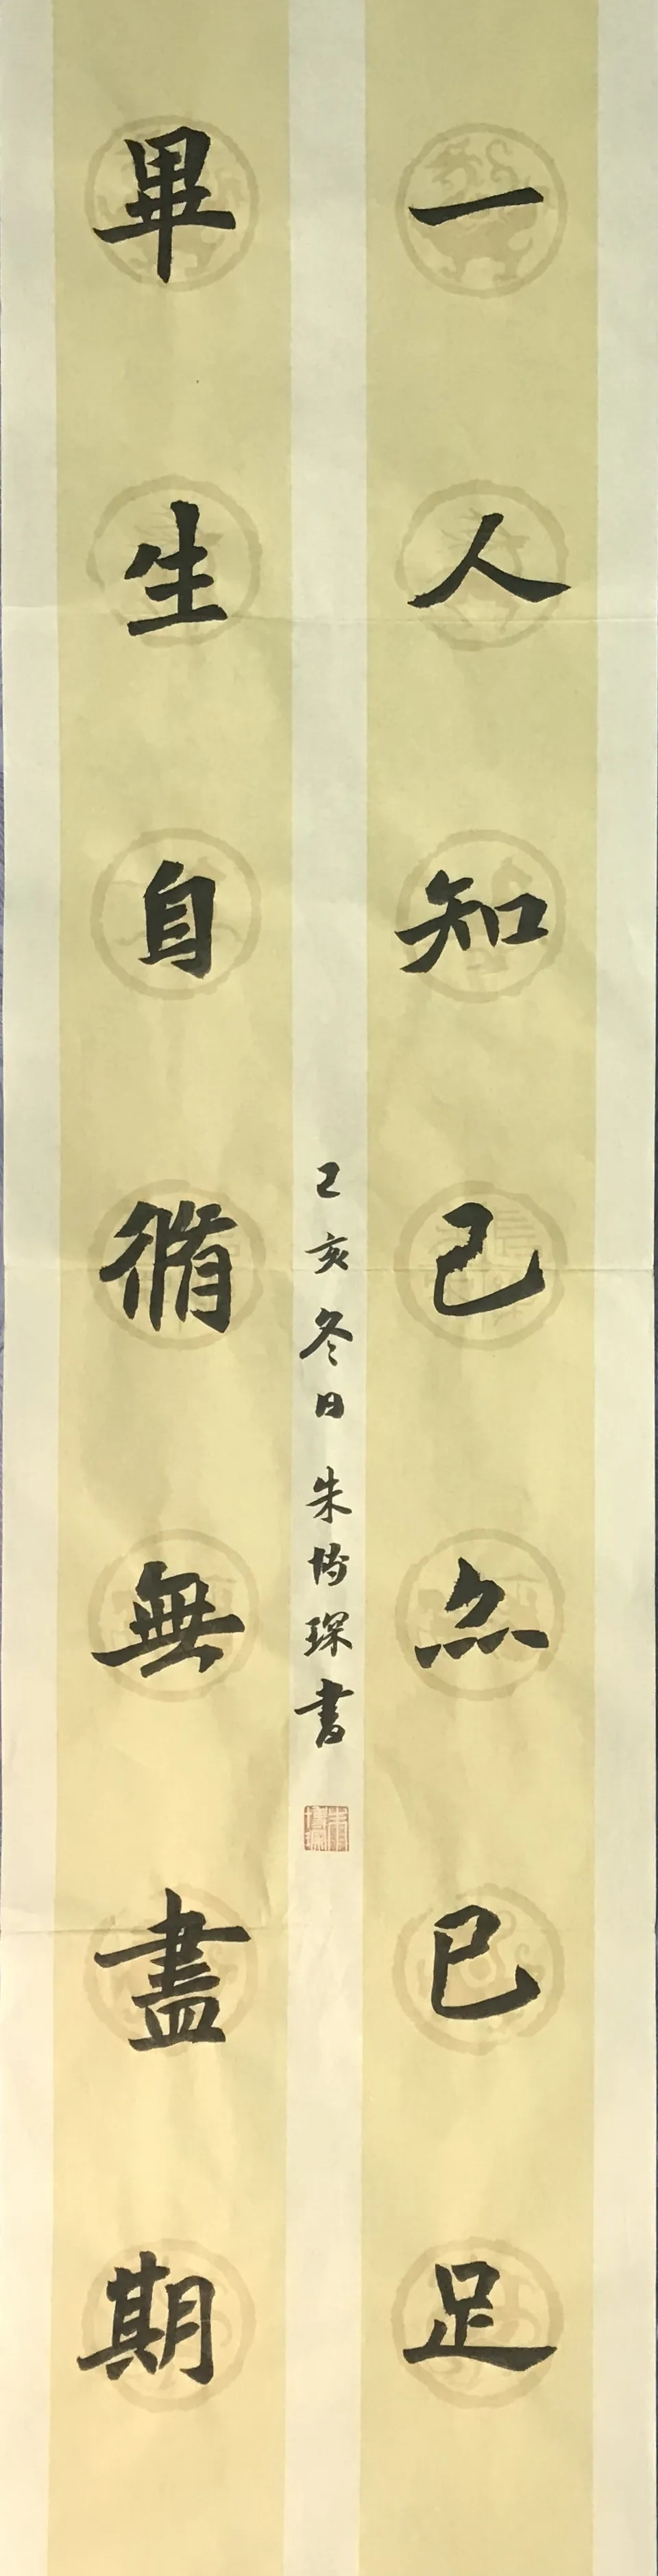 一人知己亦已足
畢生自脩無盡期
己亥冬日 朱博琛書